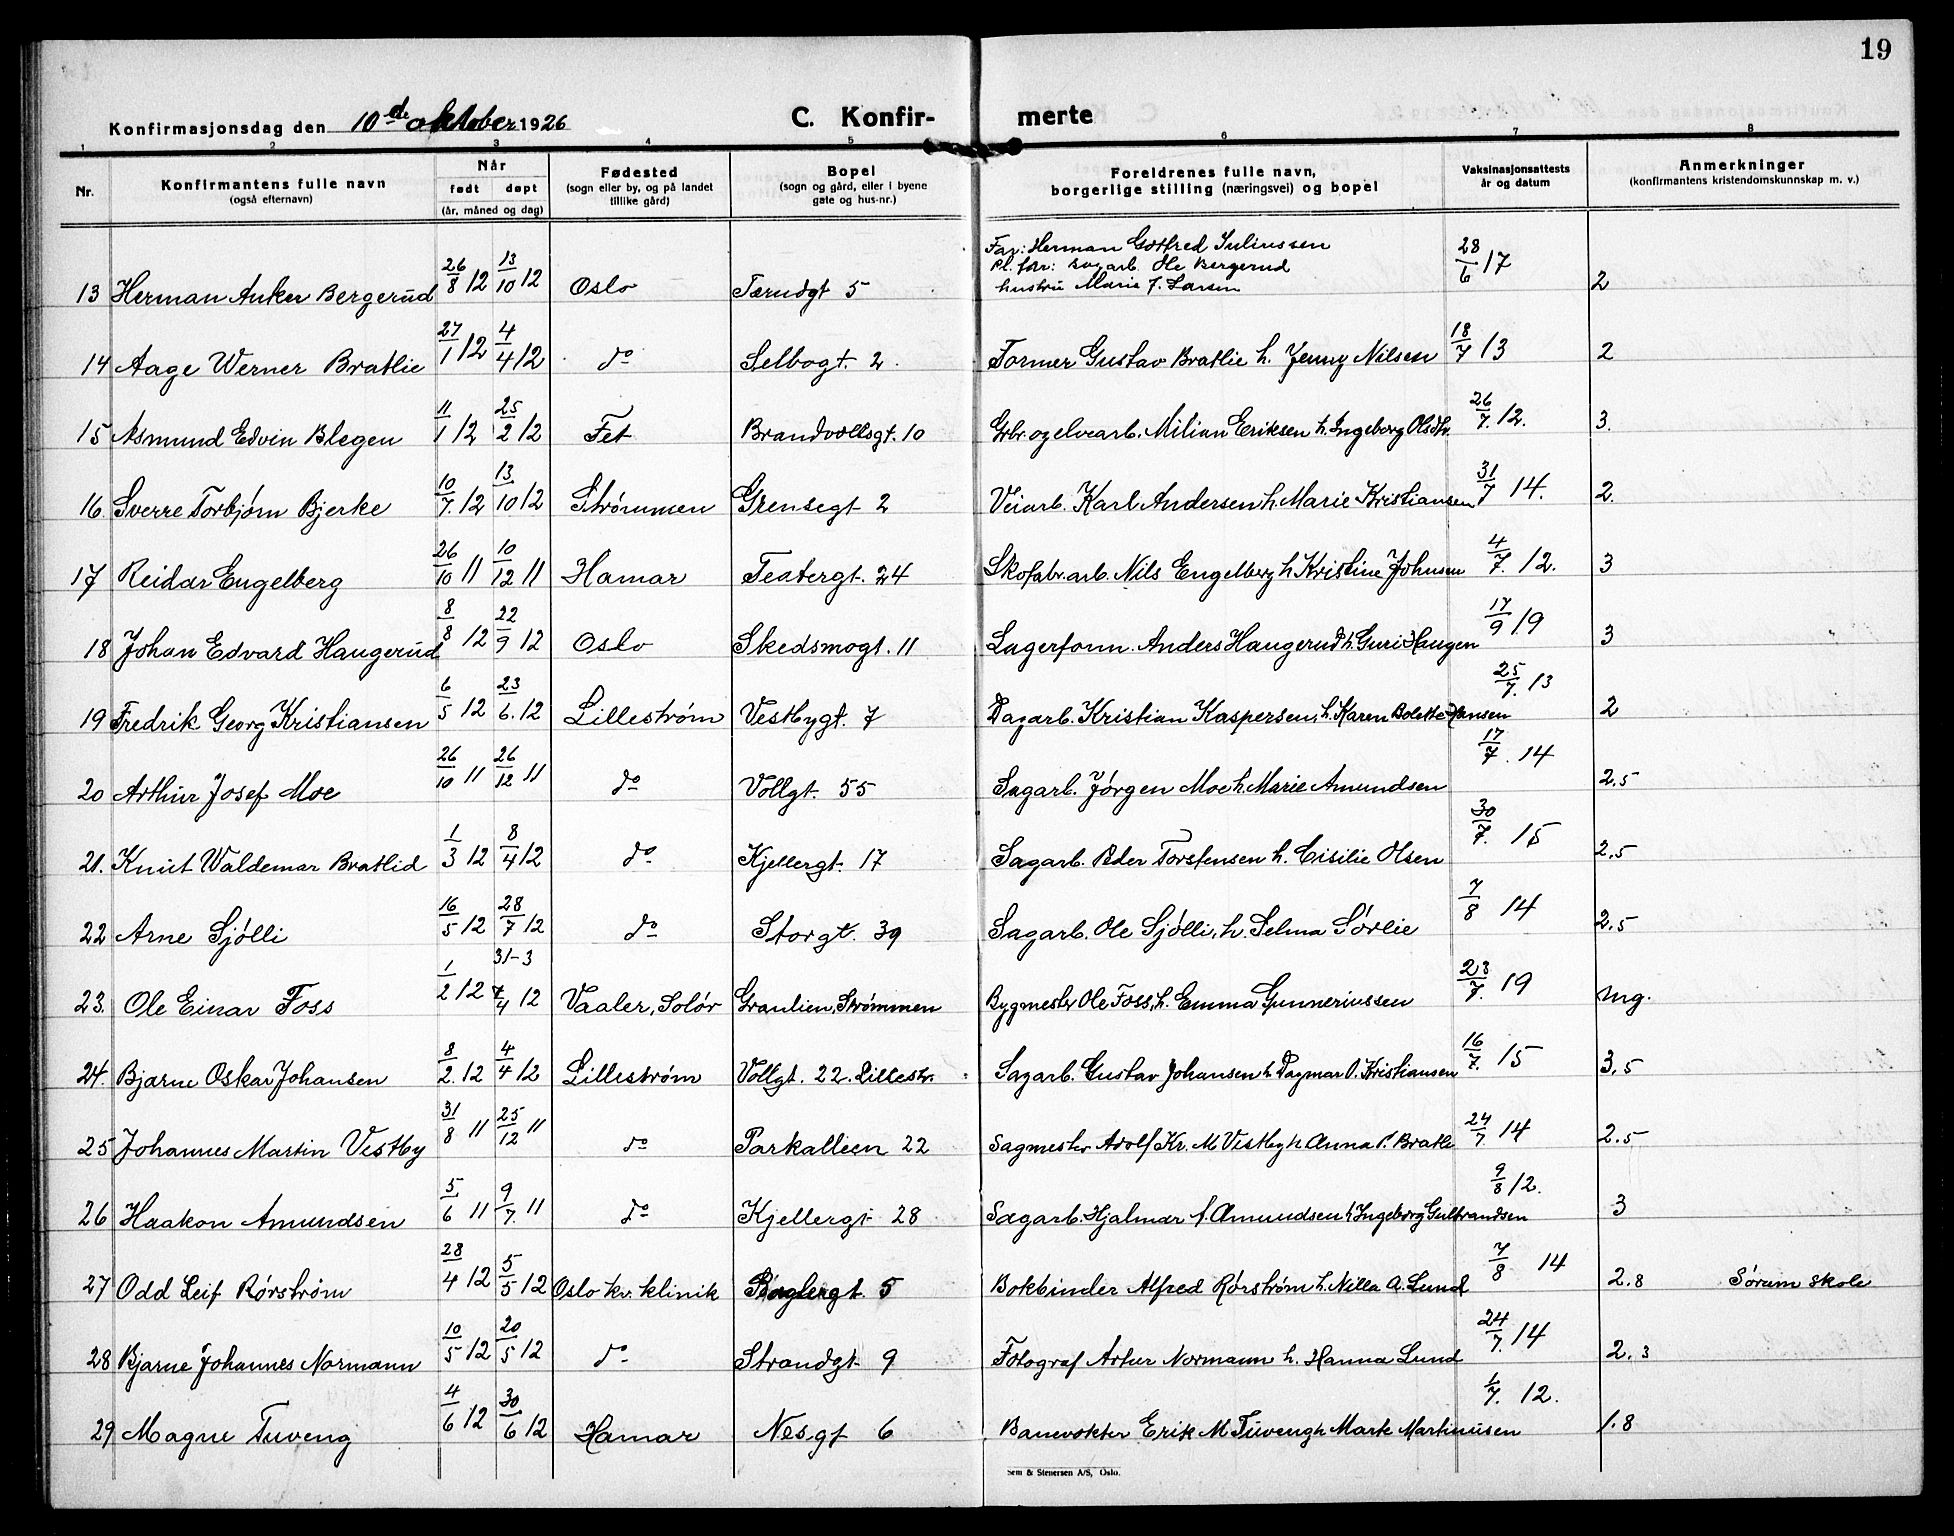 19
Konfirmasjonsdag den 10de oktober 1926 C. Konfir- merte
1 2 3 4 5 6 7 8
Nr. Konfirmantens fulle navn (også efternavn) Når født døpt (år, måned og dag) Fødested (sogn eller by, og på landet tillike gård) Bopel (sogn og gård, eller i byene gate og hus-nr.) Foreldrenes fulle navn, borgerlige stilling (næringsvei) og bopel Vaksinasjonsattests år og datum Anmerkninger (konfirmantens kristendomskunnskap m. v.)
Far: Herman Gotfred Juliussen
Pl. for: Ole Bergerud
hustru Marie J. Larsen
13 Herman Anker Bergerud 26/8 12 13/10 12 Oslo Tærudgt 5 28/6 17 2
14 Aage Werner Bratlie 27/1 12 4/4 12 do Selbogt. 2. Former Gustav Bratlie h. Jenny Nilsen 18/7 13 2
15 Asmund Edvin Blegen 11/1 12 25/2 12 Fet Brandvollsgt. 10 Grbr. og elvearb. Milian Eriksen h. Ingeborg Olsdtr. 26/7. 12. 3.
16. Sverre Torbjørn Bjerke 10/7. 12 13/10 12 Strømmen Grensegt 2 Veiarb. Karl Andersen h. Marie Kristiansen 31/7 14. 2.
17 Reidar Engelberg 26/10 11 10/12 11 Hamar Teatergt. 24 Skofabr.arb. Nils Engelberg h Kristine Johnsen 4/7. 12. 3
18 Johan Edvard Haugerud 8/8 12 22/9 12 Oslo Skedsmogt. 11 Lagerform. Anders Haugerud h. Guri Haugen 17/9 19 3
19 Fredrik Georg Kristiansen 6/5 12 23/6. 12 Lillestrøm Vestbygt. 7 Dagarb. Kristian Kaspersen, h. Karen Bolette Hansen 25/7. 13 2
20 Arthur Josef Moe 26/10 11 26/12 11 do Vollgt. 55 Sagarb. Jørgen Moe h. Marie Amundsen 17/7. 14 2.5
21. Knut Waldemar Bratlid 1/3 12 8/4 12 do Kjellergt. 17 Sagarb. Peder Torstensen h. Cisilie Olsen 30/7. 15 2.5
22 Arne Sjølli 16/5 12 28/7 12 do Storgt. 39 Sagarb. Ole Sjølli, h. Selma Sørlie 7/8 14 2.5
31-3
23. Ole Einar Foss 1/2 12 /4 12 Vaaler, Solør Granlien, Strømmen Bygmestr Ole Foss, h. Emma Gunneriussen 23/7. 19 mg.
24. Bjarne Oskar Johansen 8/2. 12 4/4 12 Lillestrøm Vollgt. 22. Lillestr. Sagarb. Gustav Johansen h Dagmar O. Kristiansen 16/7. 15 3.5
25 Johannes Martin Vestby 31/8 11 25/12 11 do Parkalleen 22 Sagmestr Adolf Kr. M Vestby h Anna P. Bratli 24/7 14 2.5
26 Haakon Amundsen 5/6 11 9/7. 11 do Kjellergt 28 Sagarb. Hjalmar J. Amundsen h Ingeborg Gulbrandsen 9/8 12. 3
27 Odd Leif Rørstrøm 28/4 12 5/5 12 Oslo kv. klinik 5 Bokbinder Alfred Rørstrøm h. Nilla A. Lund 7/8 14 2.8 Sørum skole
28 Bjarne Johannes Normann 10/5 12 20/5 12 do Strandgt 9 Fotograf Artur Normann h. Hanna Lund 24/7. 14 2.3
29 Magne Tuveng 4/6 12 30/6 12 Hamar Nesgt 6 Banevokter Erik M Tuveng h Marte Martinusen 1/7. 12. 1.8
Sem & Stenersen A/S, Oslo.